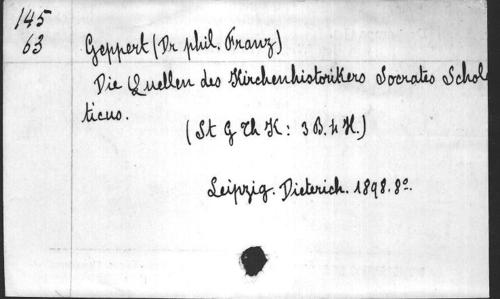 145
63
Geppert (Dr phil. Franz)
Die Quellen des Kirchenhistorikers Socrates Schola
ticus.
(St G Th K: 3 B. 4 H.)
Leipzig. Dieterich. 1898. 8º.